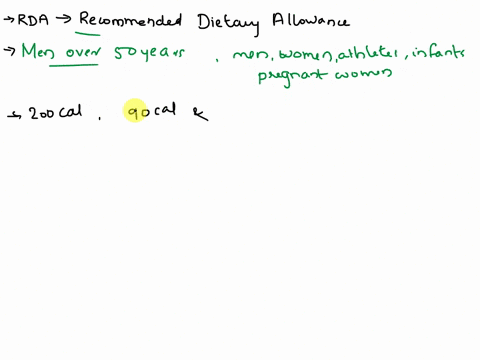 → RDA → Recommended Dietary Allowance
→ Men over 50 years , men, women, athletes, infants
pregnant women
→ 200 cal , 90 cal &